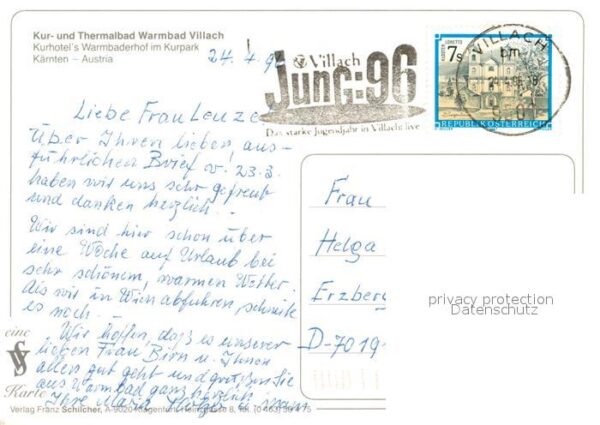 Kur- und Thermalbad Warmbad Villach
Kurhotel's Warmbaderhof im Kurpark
Kärnten – Austria
24. 4. 9
Villach
Jung:96
Das starke Jugendjahr in Villach live
VILLACH
KÄRNTEN LORETTO
7s
REPUBLIK ÖSTERREICH
Liebe Frau Leuze
Über Ihren lieben! aus-
führlichen Brief v. 23.3.
haben wir uns sehr gefreut
und danken herzlich.
Wir sind hier schon über
eine Woche auf Urlaub bei
sehr schönem, warmen Wetter.
Als wir in Wien abfuhren, schneite
es noch.
Wir hoffen, daß es unserer
lieben Frau Birn u. Ihnen
allen gut geht und grüßen Sie
aus Warmbad ganz herzlich
Ihre Maria
Frau
Helga
Erzberg
D-7019
privacy protection
Datenschutz
eine
Karte
Verlag Franz Schilcher, A-9020 Klagenfurt